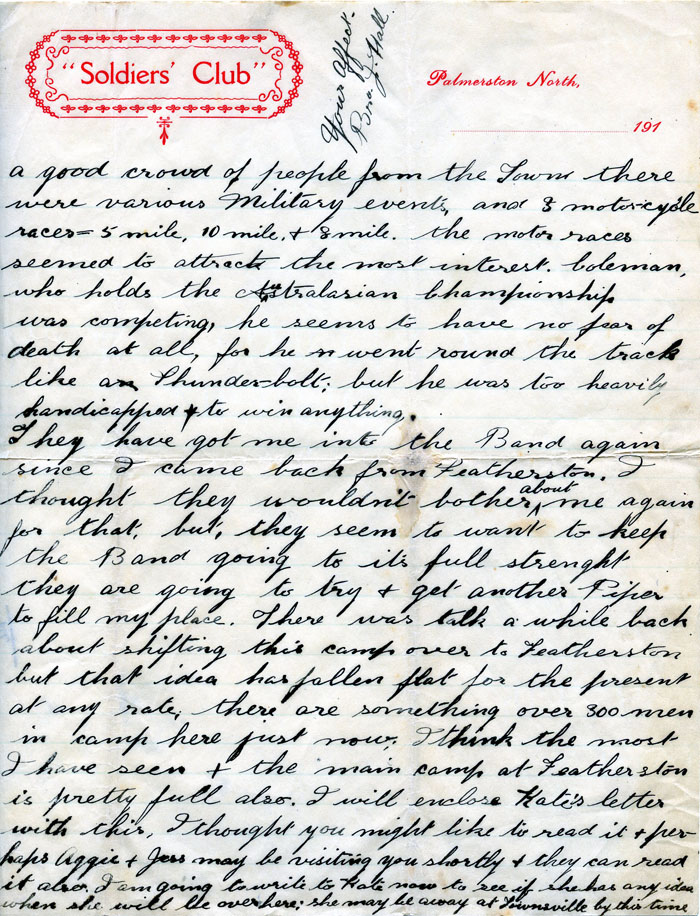 "Soldiers' Club"
Your Affect.
Bro. J. Hall.
Palmerston North,
191
a good crowd of people from the Town there
were various Military events, and 3 motor-cycle
races = 5 mile, 10 mile, & 8 mile. the motor races
seemed to attract the most interest. Coleman,
who holds the Australasian Championship
was competing, he seems to have no fear of
death at all, for he went round the track
like a Thunder-bolt; but he was too heavily
handicapped to win anything.
They have got me into the Band again
since I came back from Featherston. I
thought they wouldn't bother about me again
for that, but, they seem to want to keep
the Band going to it's full strenght
they are going to try & get another Piper
to fill my place. There was talk a while back
about shifting this camp over to Featherston
but that idea has fallen flat for the present
at any rate, there are something over 300 men
in camp here just now, I think the most
I have seen & the main camp at Featherston
is pretty full also. I will enclose Kate's letter
with this, I thought you might like to read it & per-
haps Aggie & Jess may be visiting you shortly & they can read
it also. I am going to write to Kate now to see if she has any idea
when she will be over here; she may be away at Townsville by this time